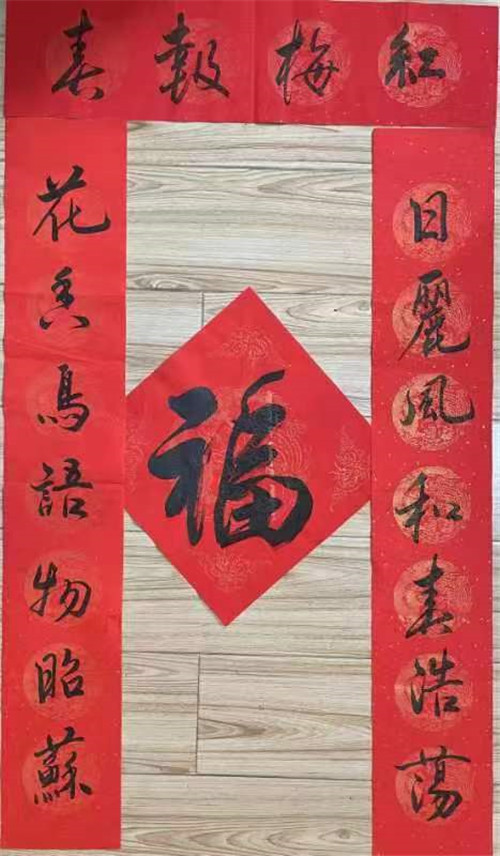 紅梅報春
日麗風和春浩蕩
花香鳥語物昭蘇
福